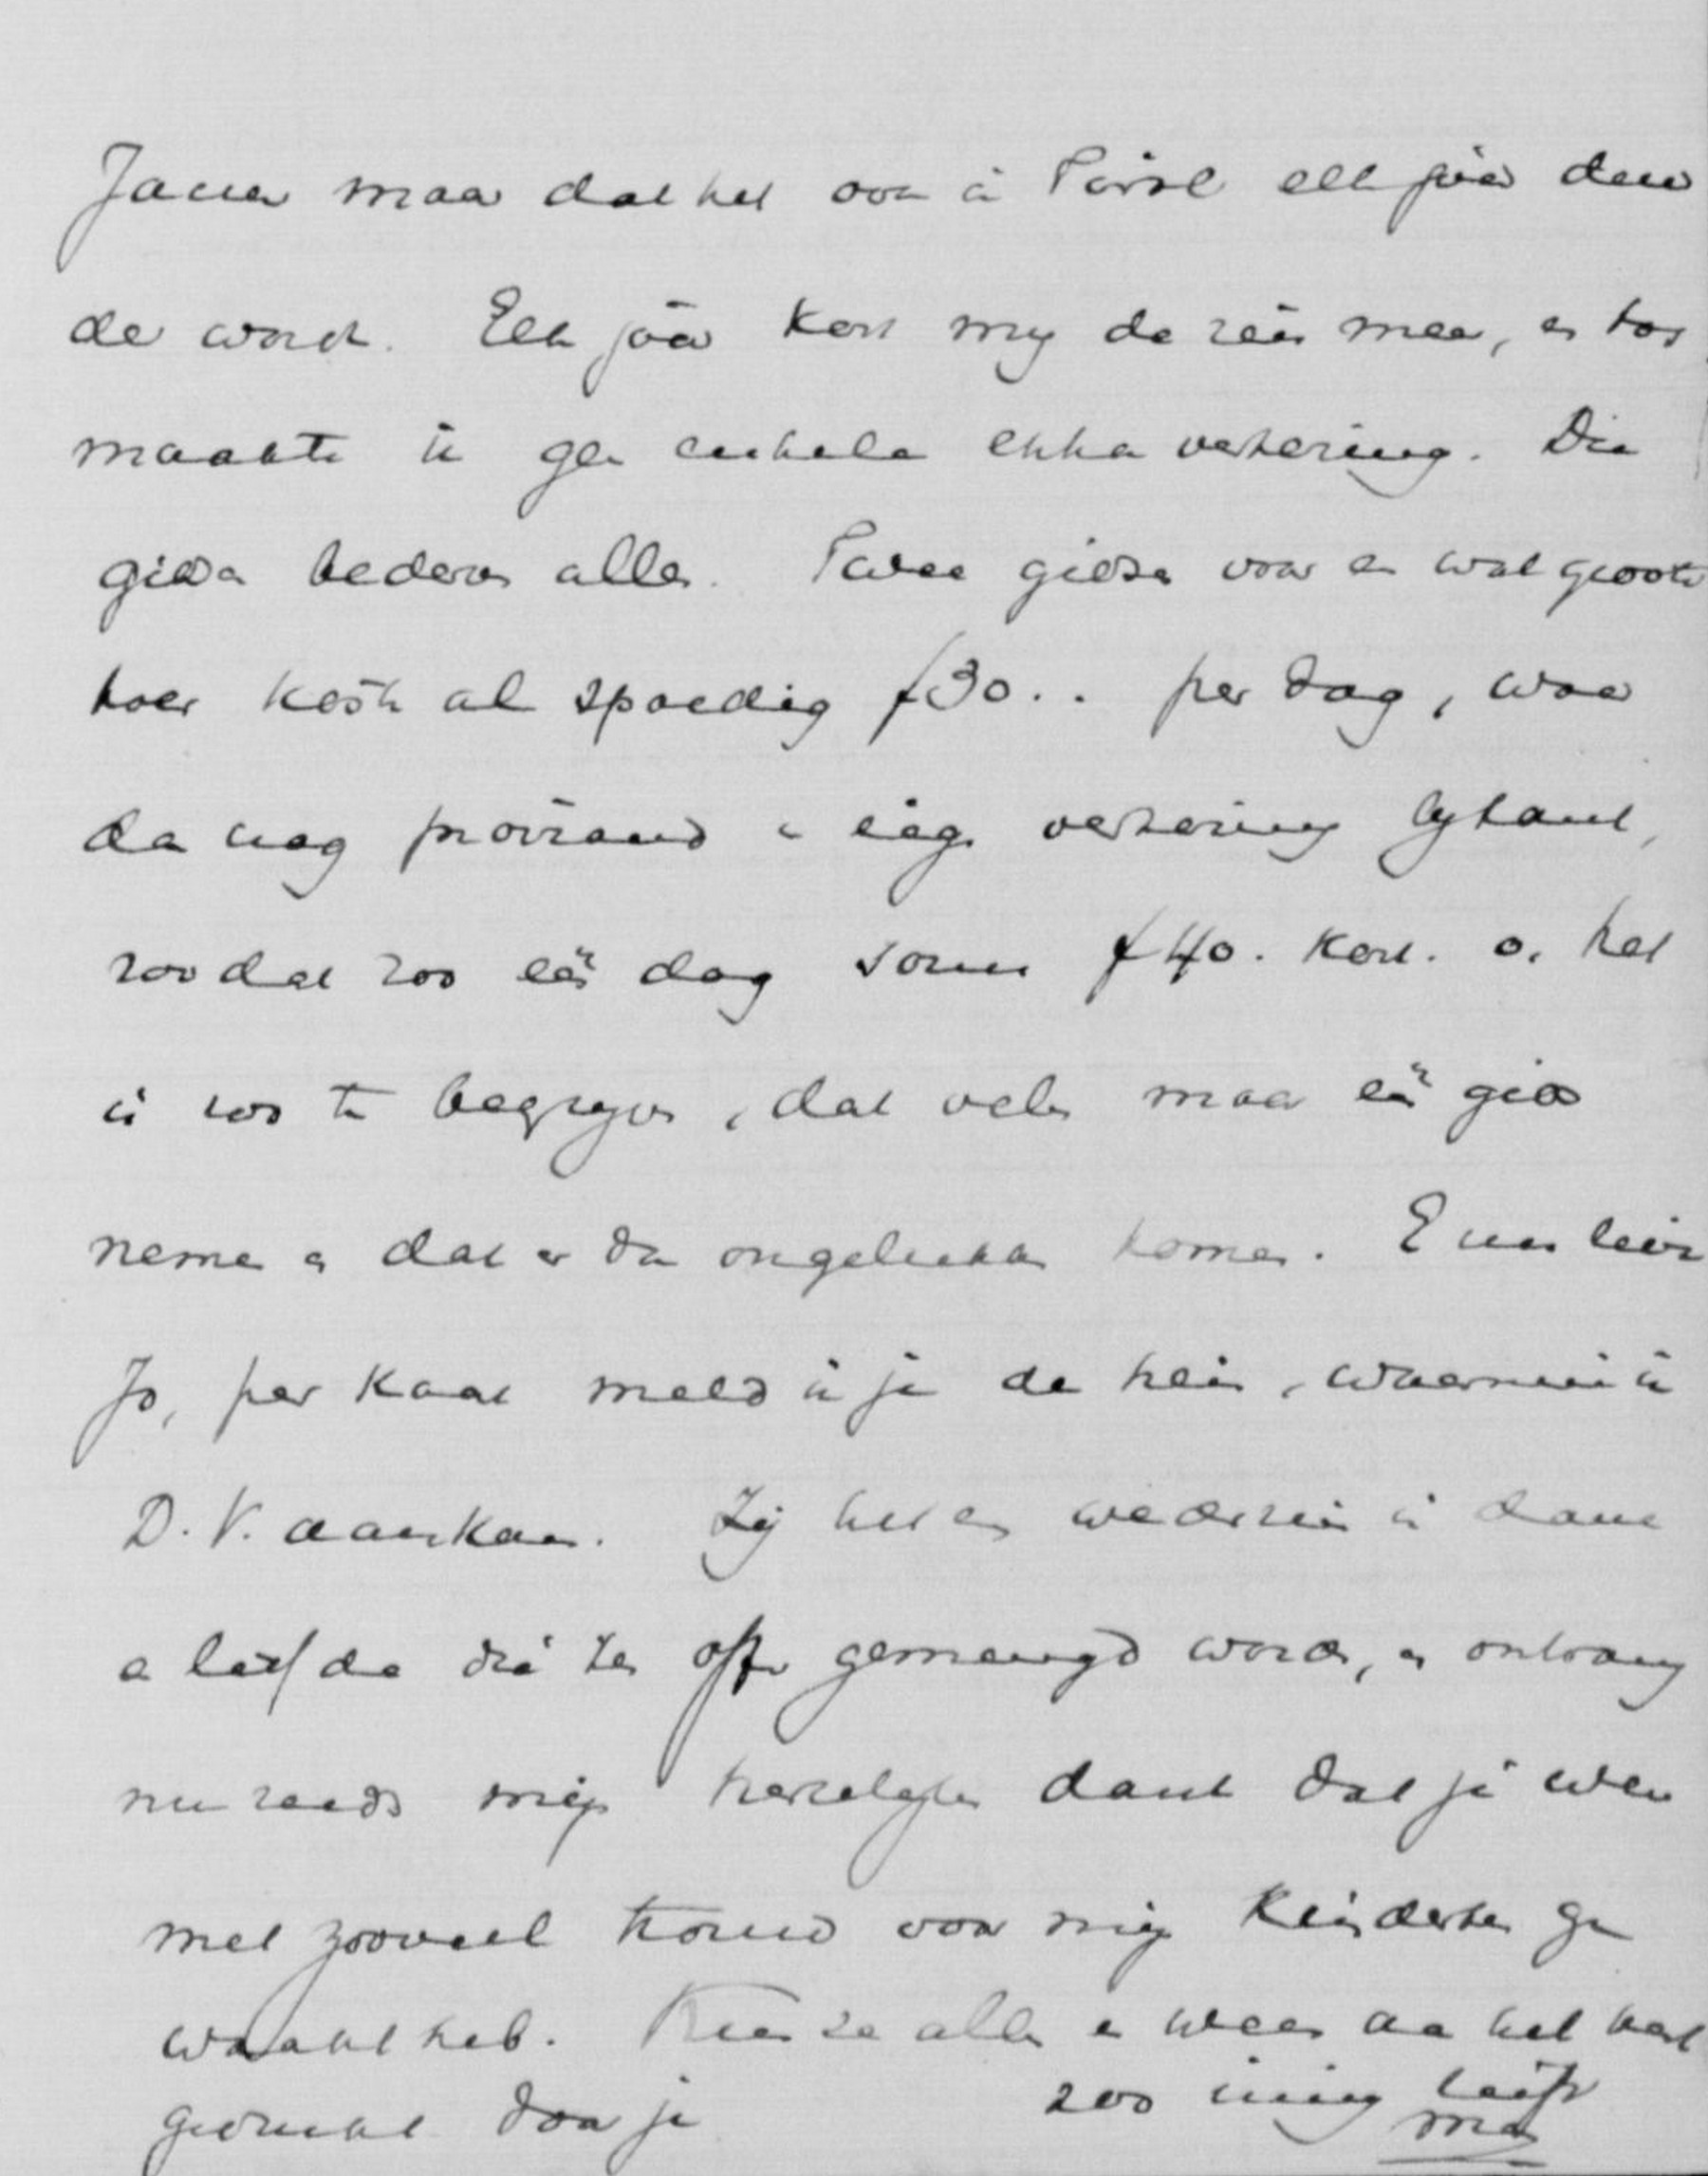 Jamer maar dat het ook in Tirol elk jaar duur
der wordt. Elk jaar kost mij de reis meer, en toch
maakte ik geen enkele extra vertering. Die
gidsen bederven alles. Twee gidsen voor een wat grootere
toer kosten al spoedig f30.. per dag, waar
dan nog proviand en eigen vertering bijkomt,
zoodat zoo een dag soms f40. kost. o, het
is zoo te begrijpen, dat velen maar één gids
nemen en dat er dan ongelukken komen. En nu lieve
Jo, per kaart meld ik je de trein, waarmee ik
D.V. aankom. Zij het een wederzien in dank
en liefde die zoo gemengd worden, en ontvang
nu reeds mijn hartelijken dank dat je weer
met zooveel trouw voor mijn kinderen ge
waakt hebt. Kus ze allen en wees aan het hart
gedrukt door je zoo innig liefh
man